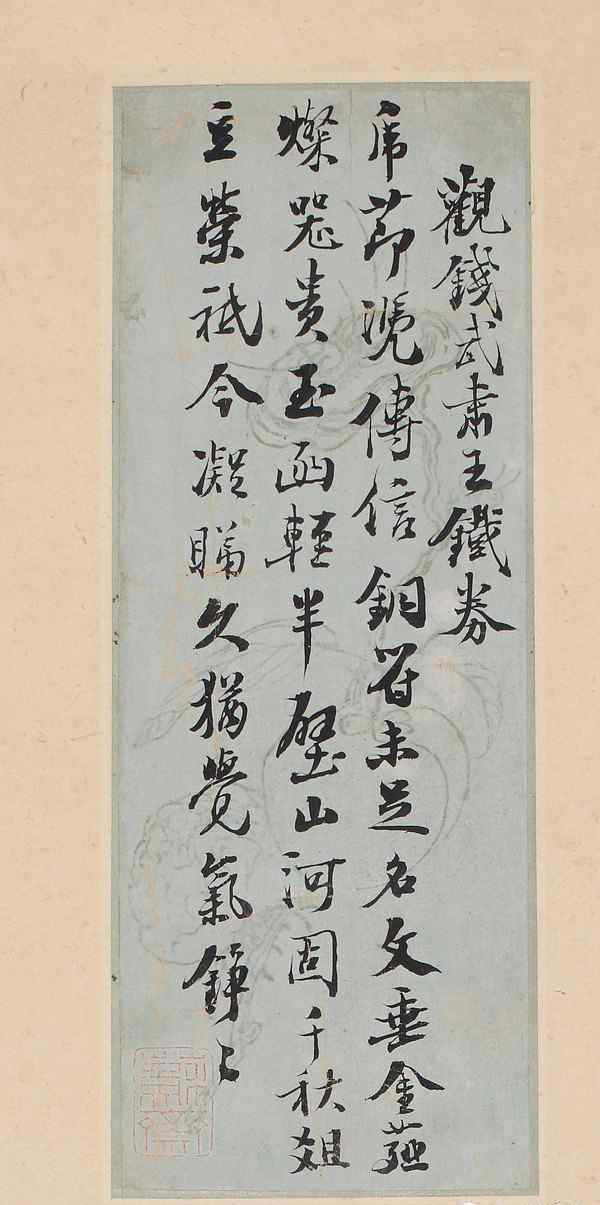 觀錢武肅王鐵券
虎節凴傳信銅符未足名文垂金薤
燦器貴玉函輕半壁山河固千秋俎
豆榮祇今凝睇久猶覺氣錚〻